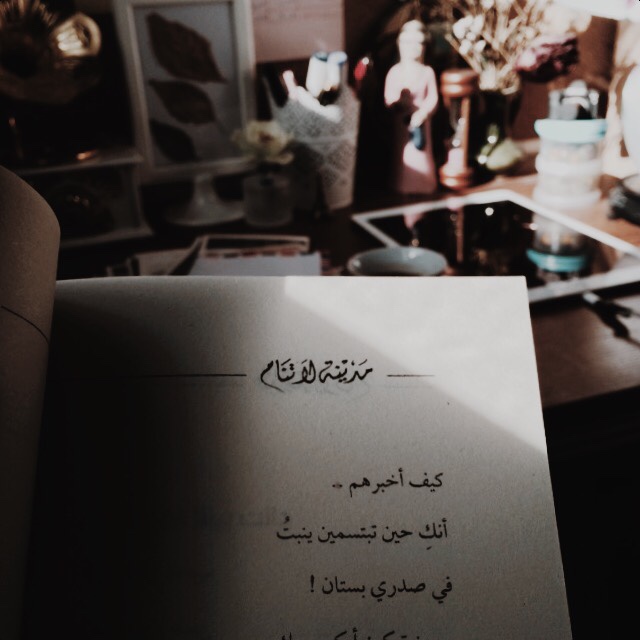 مَدينَة لا تَنَام
كيف أخبرهم -
أنكِ حين تبتسمين ينبتُ
في صدري بستان !